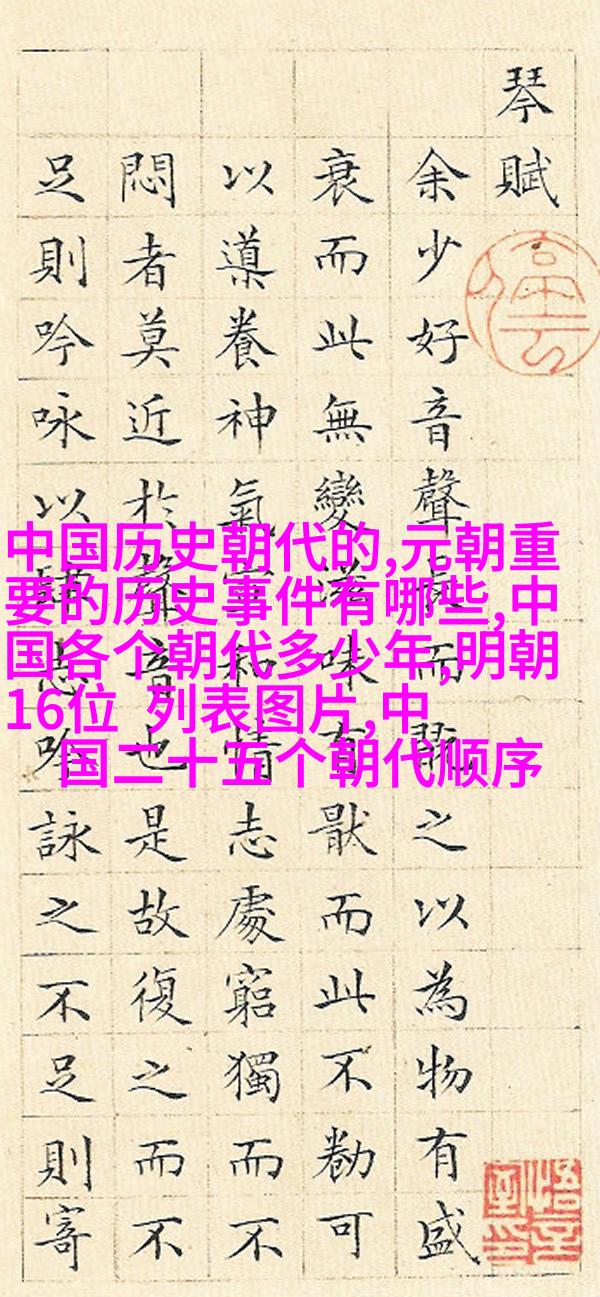 琴賦
余少好音聲長而翫之以為物有盛
衰而此無變滋味有猒而此不勌可
以導養神氣宣和情志處窮獨而不
悶者莫近於聲音也是故復之而不
足則吟咏以肆志吟詠之不足則寄
中国历史朝代的,元朝重
要的历史事件有哪些,中
国各个朝代多少年,明朝
16位 列表图片,中
国二十五个朝代顺序